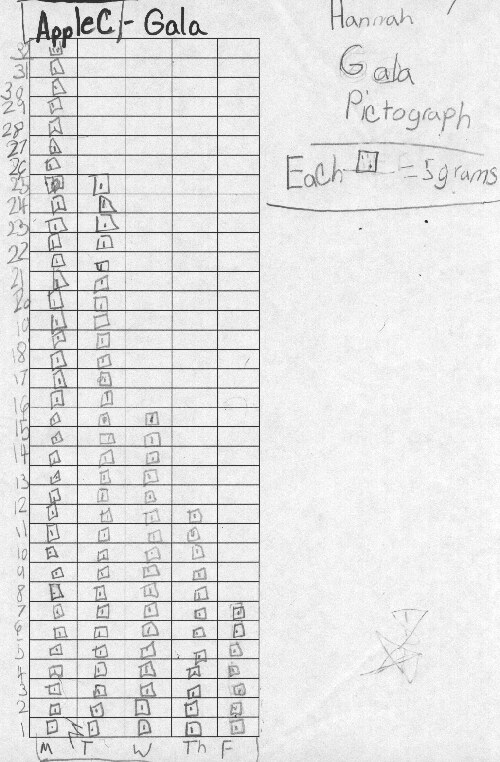 AppleC - Gala
Hannah
Gala
Pictograph
Each = 5 grams
31
30
29
28
27
26
25
24
23
22
21
20
19
18
17
16
15
14
13
12
11
10
9
8
7
6
5
4
3
2
1
M T W Th F